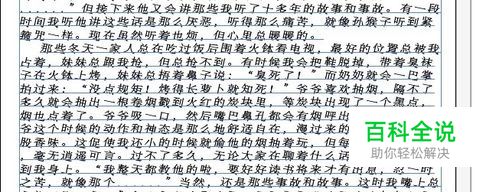 ......"但接下来他又会讲那些我听了十多年的故事和事故。有一段
时间我听他讲这些话是那么厌恶，听得那么痛苦，就像孙猴子听到紧
箍咒一样。现在虽然听着也烦，但心里总暖暖的。
那些冬天一家人总在吃过饭后围着火钵看电视，最好的位置总被我
占着，妹妹总跟我抢，但总抢不到。有时候我会把鞋脱掉，带着臭袜
子在火钵上烤，妹妹总捂着鼻子说："臭死了！"而奶奶就会一巴掌
拍过来："没点规矩！烤得长萝卜就知死！"爷爷喜欢抽烟，隔不了
多久就会抽出一根卷烟戳到火红的炭块里，等炭块出现了一个黑点，
烟也点着了。爷爷吸一口，然后嘴巴鼻孔都会有烟呼出
爷这个时候的动作和神态是那么地舒适自在，漫过来的
股香味。这促使我还小的时候就偷他的烟抽着玩，但每
，毫无逍遥可言。过不了多久，无论大家在聊着什么话
到我身上。"我整天都教他的啦，要好好读书将来才有出息，忍一时
之苦，就像那个......"当然，还是那些事故和故事。这时我
百科全说
助你轻松解决